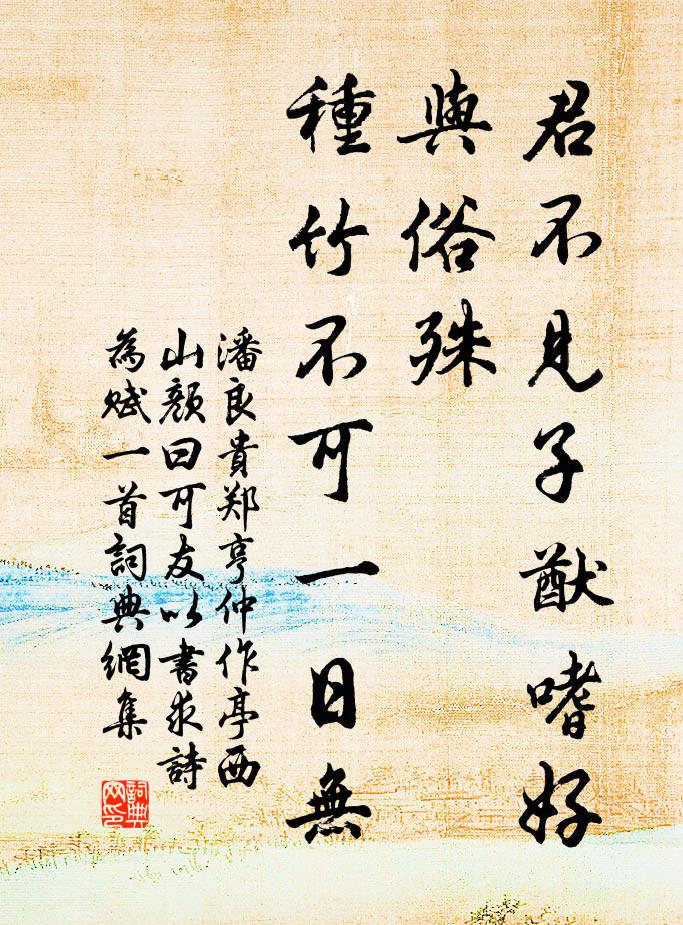 君不見子猷嗜好
與俗殊
種竹不可一日無
潘良貴郑亨仲作亭西
山顏曰可友以書求詩
為赋一首詞典網集
詞典
网印